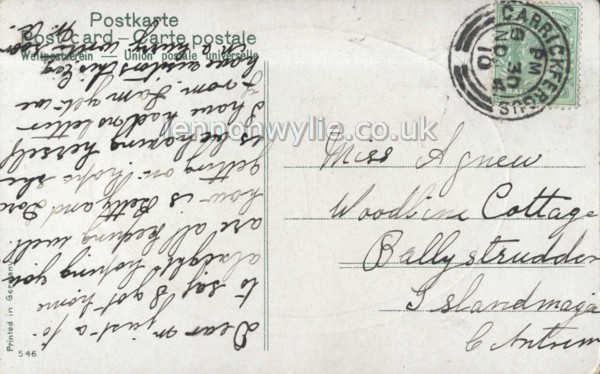 Postkarte
Post card – Carte postale
Weltpostverein – Union postale universelle
CARRICKFERGUS
5 30 PM
NO 4
10
Miss Agnew
Woodbine Cottage
Ballystrudden
Islandmagee
C Antrim
Dear M just a
to say I got home
alright hoping you
are all keeping well.
how is Betty and Dora
getting on. hope she
is behaving herself
I have had no letter
from Sam yet. we
have visitors this
in a hurry write soon
Printed in Germany
546.
lennonwylie.co.uk